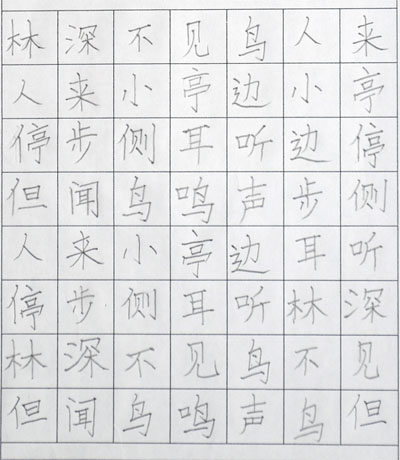 林深不见鸟人来
人来小亭边小亭
停步侧耳听边停
但闻鸟鸣声步侧
人来小亭边耳听
停步侧耳听林深
林深不见鸟不见
但闻鸟鸣声鸟但